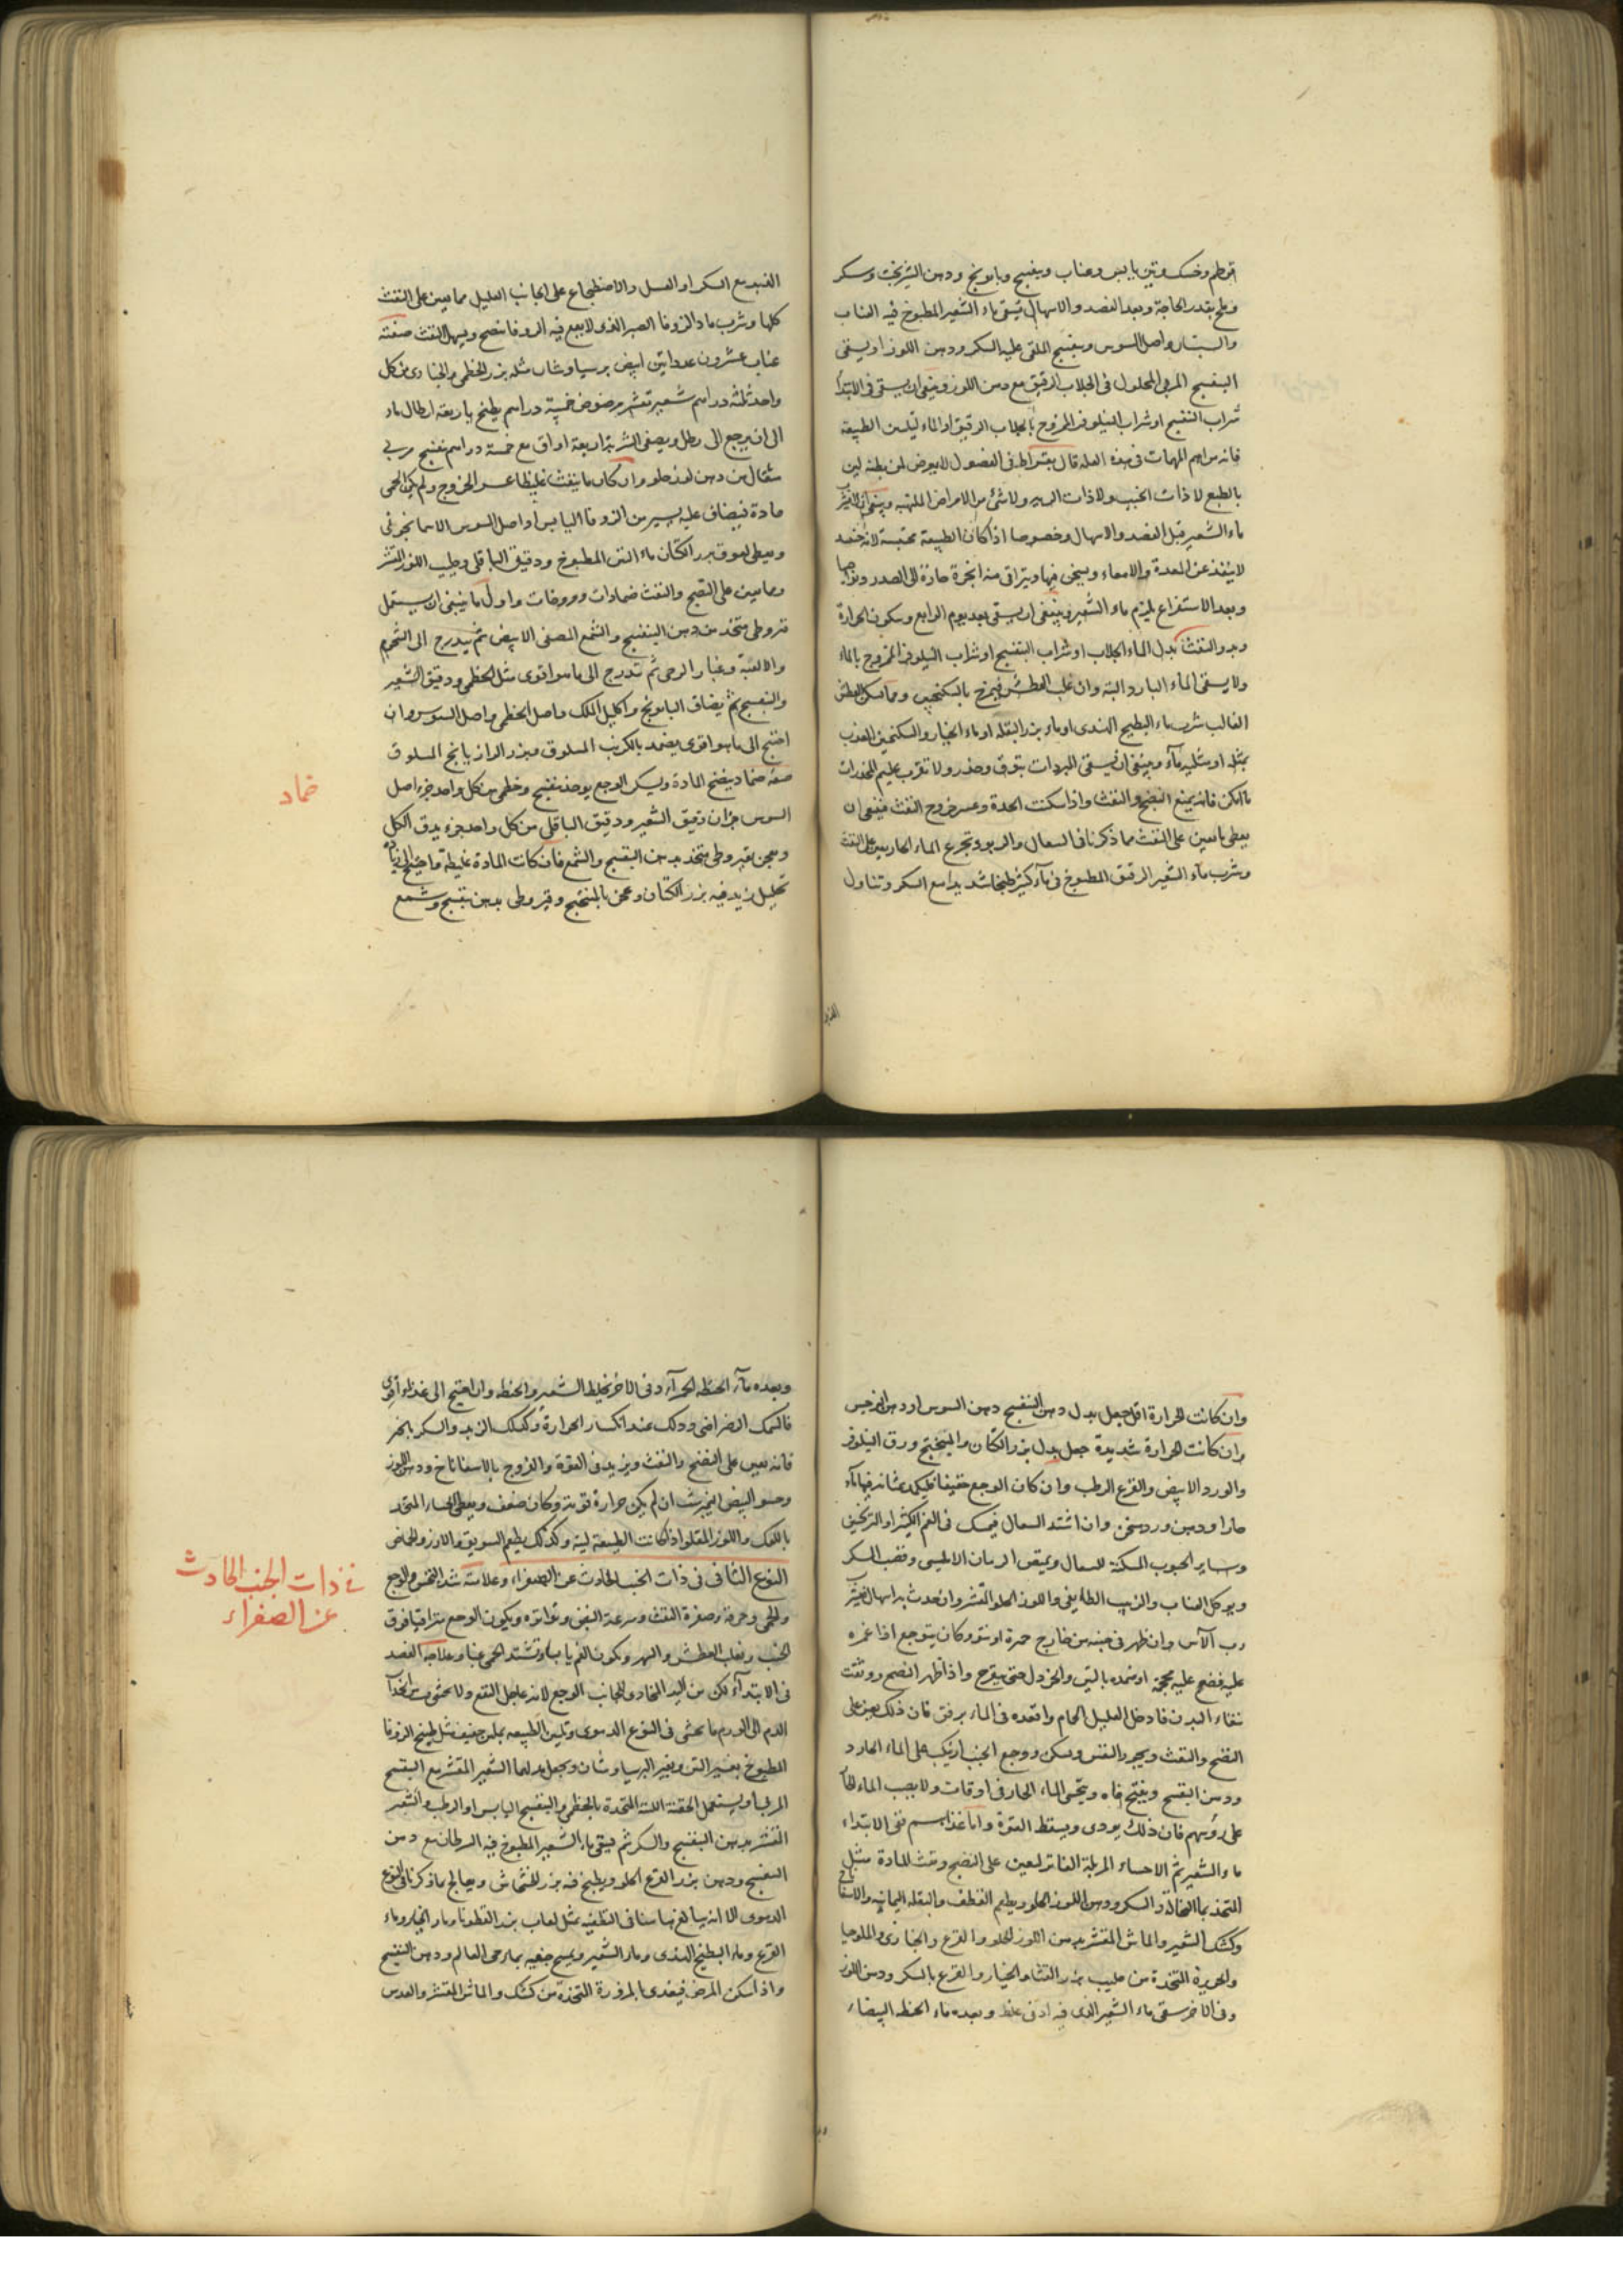 قرطم وخسك وتين يابس وعناب وبنفسج وبابونج ودهن الشيرج وسكر
وملح بقدر الحاجة وبعد الفصد والاسهال يسقى ماء الشعير المطبوخ فيه العناب
والسبستان واصل السوس وبنفسج الملقى عليه السكر ودهن اللوز او يسقى
البنفسج المربى المحلول فى الجلاب الرقيق مع دهن اللوز وينبغى ان يسقى فى الابتدأ
شراب البنفسج او شراب النيلوفر الممزوج بالجلاب الرقيق او الماء ليلين الطبيعة
فانه من اهم المهمات فى هذه العلة قال بقراط فى الفصول لا يعرض لمن بطنه لين
بالطبع لا ذات الجنب ولا ذات الريه ولا شئ من الامراض الملتهبه وينبغى ان لا
ماء الشعير قبل الفصد والاسهال وخصوصا اذا كان الطبيعة محتبسة لانه حينئذ
لا ينفذ عن المعدة والامعاء ويسخن فيها ويتراقى منه ابخرة حارة الى الصدر ونواحيها
وبعد الاستفراغ يلزم ماء الشعير وينبغى ان يسقى بعد يوم الرابع وسكون الحرارة
وبدو النفث بدل الماء الجلاب او شراب البنفسج او شراب النيلوفر الممزوج بالماء
ولا يسقى الماء البارد البتة وان غلب العطش فيمزج بالسكنجبين ومما يسكن العطش
الغالب شرب ماء البطيخ الهندى او ماء بزر البقله او ماء الخيار والسكنجبين العذب
بمثله او مثليه ماء وينبغى ان يسقى المبردات بتوق وحذر ولا تقرب عليهم المخدرات
ما امكن فانه يمنع النضج والنفث واذا سكنت الحدة وعسر خروج النفث فينبغى ان
يعطى ما يعين على النفث مما ذكرنا فى السعال والربو وتجرع الماء الحار يعين على النفث
وشرب ماء الشعير الرقيق المطبوخ فى ماء كثير طبخا شديدا مع السكر وتناول
القنبيد مع السكر او العسل والاضطجاع على الجانب العليل مما يعين على النفث
كلها وشرب ماء الزوفا الصبر الذى لا يقع فيه الزوفا ينضج ويسهل النفث صفته
عناب عشرون عددا تين ابيض برسياوشان مثله بزر الخطمى والخبازى من كل
واحد ثلثة دراهم شعير مقشر مرضوض خمسة دراهم يطبخ باربعة ارطال ماء
الى ان يرجع الى رطل ويصفى الشربة اربعة اواق مع خمسة دراهم بنفسج مربى
مثقال من دهن لوز حلو وان كان ما ينفث غليظا عسر الخروج ولم يكن الحمى
حادة فيضاف عليه يسير من الزوفا اليابس او اصل السوس الاسمانجونى
ويعطى لعوق بزر الكتان ماء التين المطبوخ ودقيق الباقلى وحليب اللوز المقشر
ومما يعين على النضج والنفث ضمادات ومروخات واول ما ينبغى ان يستعمل
قيروطى متخذ من دهن البنفسج والشمع المصفى الابيض ثم يتدرج الى الشحوم
والالعبة وغبار الرحى ثم تدرج الى ما هو اقوى مثل الخطمى ودقيق الشعير
والبنفسج ثم يضاف البابونج واكليل الملك واصل الخطمى واصل السوس وان
احتيج الى ما هو اقوى يضمد بالكرنب المسلوق وبزر الرازيانج المسلوق
صفة ضماد ينضج المادة ويسكن الوجع يوخذ بنفسج وخطمى من كل واحد جزء اصل
السوس جزان دقيق الشعير ودقيق الباقلى من كل واحد جزء يدق الكل
ويعجن بقيروطى متخذ بدهن البنفسج والشمع فان كانت المادة غليظة فاحتيج الى زيادة
تحليل زيد فيه بزر الكتان وعجن بالميبختج وقيروطى بدهن بنفسج وشمع
ضماد
وان كانت الحرارة اقل جعل بدل دهن البنفسج دهن السوسن او دهن النرجس
وان كانت الحرارة شديدة جعل بدل بزر الكتان والميبختج ورق النيلوفر
والورد الابيض والقرع الرطب وان كان الوجع خفيفا فليكمد بمثانه فيها ماء
حار او دهن ورد سخن وان اشتد السعال فيمسك فى الفم الكثيرا والترنجبين
وساير الحبوب المسكنة للسعال ويمتص الرمان الامليسى وقصب السكر
ويوكل العناب والزبيب الطايفى واللوز الحلو المقشر وان حدث به اسهال فيعطى
رب الآس وان ظهر فى جنبه من خارج حمرة او نتو وكان يتوجع اذا غمزه
عليه فضع عليه محجمة او ضمده بالتين والخردل حتى يتقرح واذا ظهر النضج ووثقت
بنقاء البدن فادخل العليل الحمام واقعده فى الماء برفق فان ذلك يعين على
النضج والنفث ويجود النفس ويسكن ووجع الجنب ان يكب على الماء الحار و
ودهن البنفسج ويفتح فاه ويتحسى الماء الحار فى اوقات ولا يصب الماء الحار
على رؤسهم فان ذلك يوذى ويسقط القوة واما غذاءهم ففى الابتداء
ماء الشعير ثم الاحساء المزلقة الفاتر لتعين على النضج ونفث المادة مثل
المتخذ بماء النخالة والسكر ودهن اللوز الحلو ويطعم القطف والبقلة اليمانيه والاسفاناخ
وكشك الشعير والماش المقشر بدهن اللوز الحلو والقرع والخبازى والملوخيا
والحريرة المتخذة من حليب بزر القثاء والخيار والقرع بالسكر ودهن اللوز
وفى الاخر يسقى ماء الشعير الذى فيه ادنى غلظ وبعده ماء الحنطه البيضاء
وبعده ماء الحنطه الحمراء وفى الاخر يخلط الشعير والحنطه وان احتيج الى غذاء اقوى
فالسمك الرضراضى وذلك عند انكسار الحرارة وكذلك الزبد والسكر بالخبز
فانه يعين على النضج والنفث ويزيد فى القوة والفروج بالاسفاناخ ودهن اللوز
وحسو البيض النيمبرشت ان لم يكن حرارة قويه وكان ضعف ويعطى الحساء المتخذ
بالكعك واللوز المقلو اذا كانت الطبيعة لينة وكذلك يطعم السويق والارز والحماض
النوع الثانى فى ذات الجنب الحادث عن الصفراء وعلامته شدة النخس والوجع
والحمى وحرقة وصفرة النفث وسرعة النبض وتواتره ويكون الوجع متراقيا فوق
الجنب ويغلب العطش والسهر ويكون الفم يابسا وتشتد الحمى غبا وعلاجه الفصد
فى الابتدآء لكن من اليد المحاذى للجانب الوجع لانه عاجل النفع ولا يخشى من انجذاب
الدم الى الورم ما يخشى فى النوع الدموى وتليين الطبيعه بملين خفيف مثل طبيخ الزوفا
المطبوخ بغير التين وبغير البرسياوشان ويجعل بدلهما الشعير المقشر مع البنفسج
المربا ويستعمل الحقنة اللينة المتخذة بالخطمى والبنفسج اليابس او الرطب والشعير
المقشر بدهن البنفسج والسكر ثم يسقى ماء الشعير المطبوخ فيه السرطان مع دهن
البنفسج ودهن بزر القرع الحلو ويطبخ فيه بزر الخشخاش ويعالج بما ذكرنا فى النوع
الدموى الا انه يبالغ هاهنا فى التطفيه بمثل لعاب بزر القطونا وماء الخيار وماء
القرع وماء البطيخ الهندى وماء الشعير ويمسح جنبيه بماء حى العالم ودهن البنفسج
واذا سكن المرض فيغذى بالمزورة المتخذة من كشك والماش المقشر والعدس
فى ذات الجنب الحادث
عن الصفراء